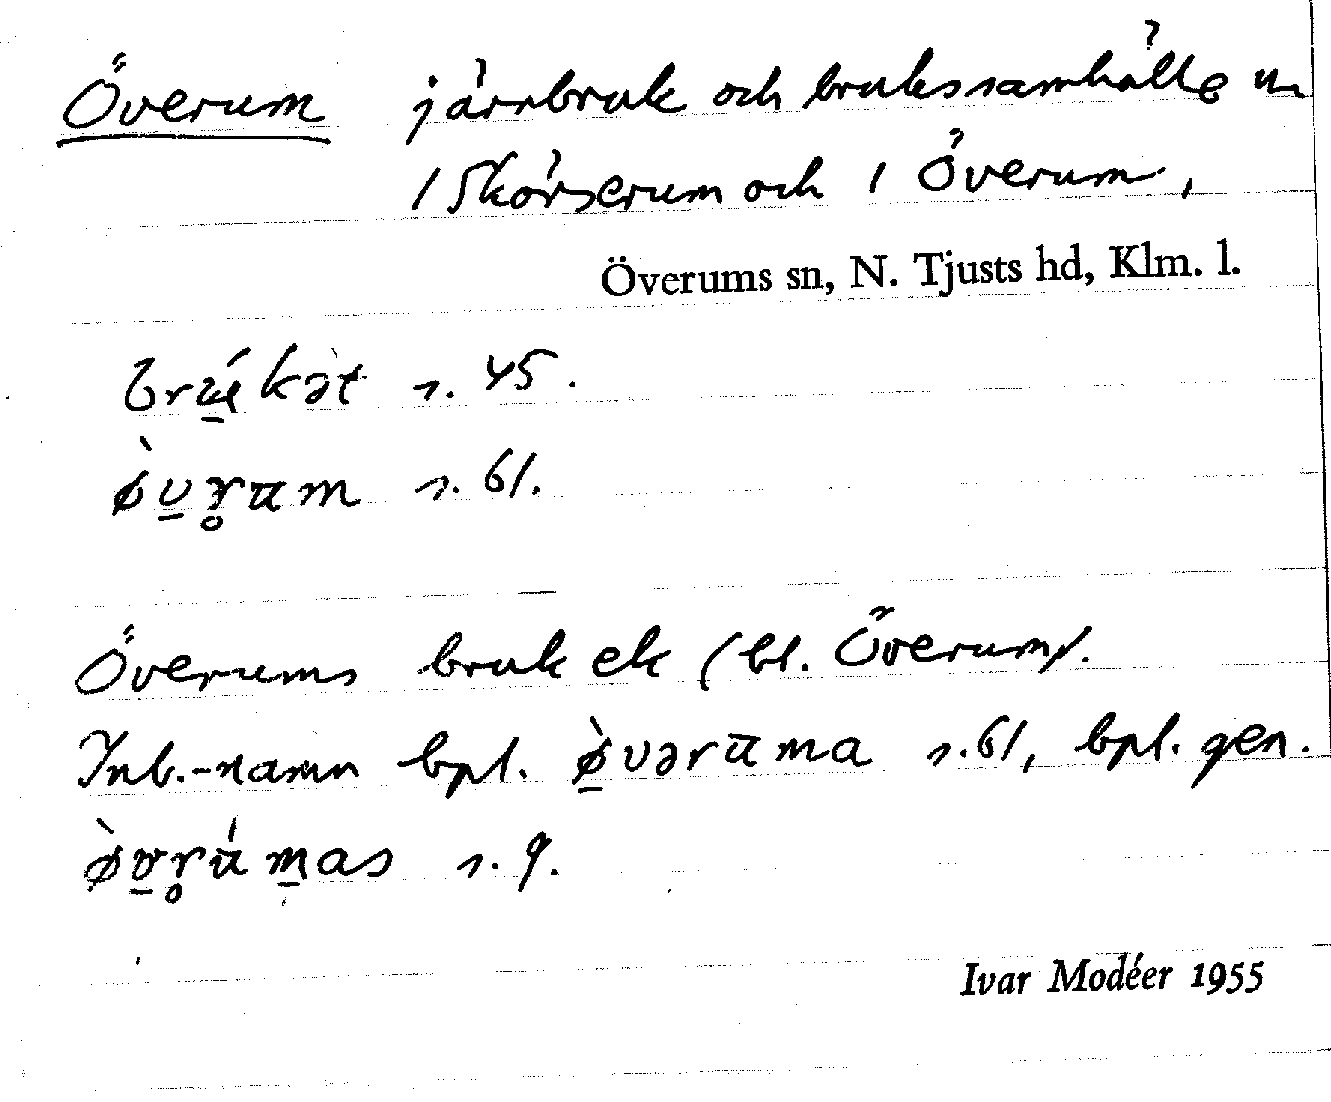 Överum järnbruk och brukssamhälle u
1 Skörserum och 1 Överum,
Överums sn, N. Tjusts hd, Klm. l.
brúkət s. 45.
ø̀v̱r̥um s. 61.
Överums bruk ek (bl. Överum).
Inb.-namn bpl. ø̱̀vərūma s.61, bpl. gen.
ø̀v̱r̥úm̱as s. 9.
Ivar Modéer 1955